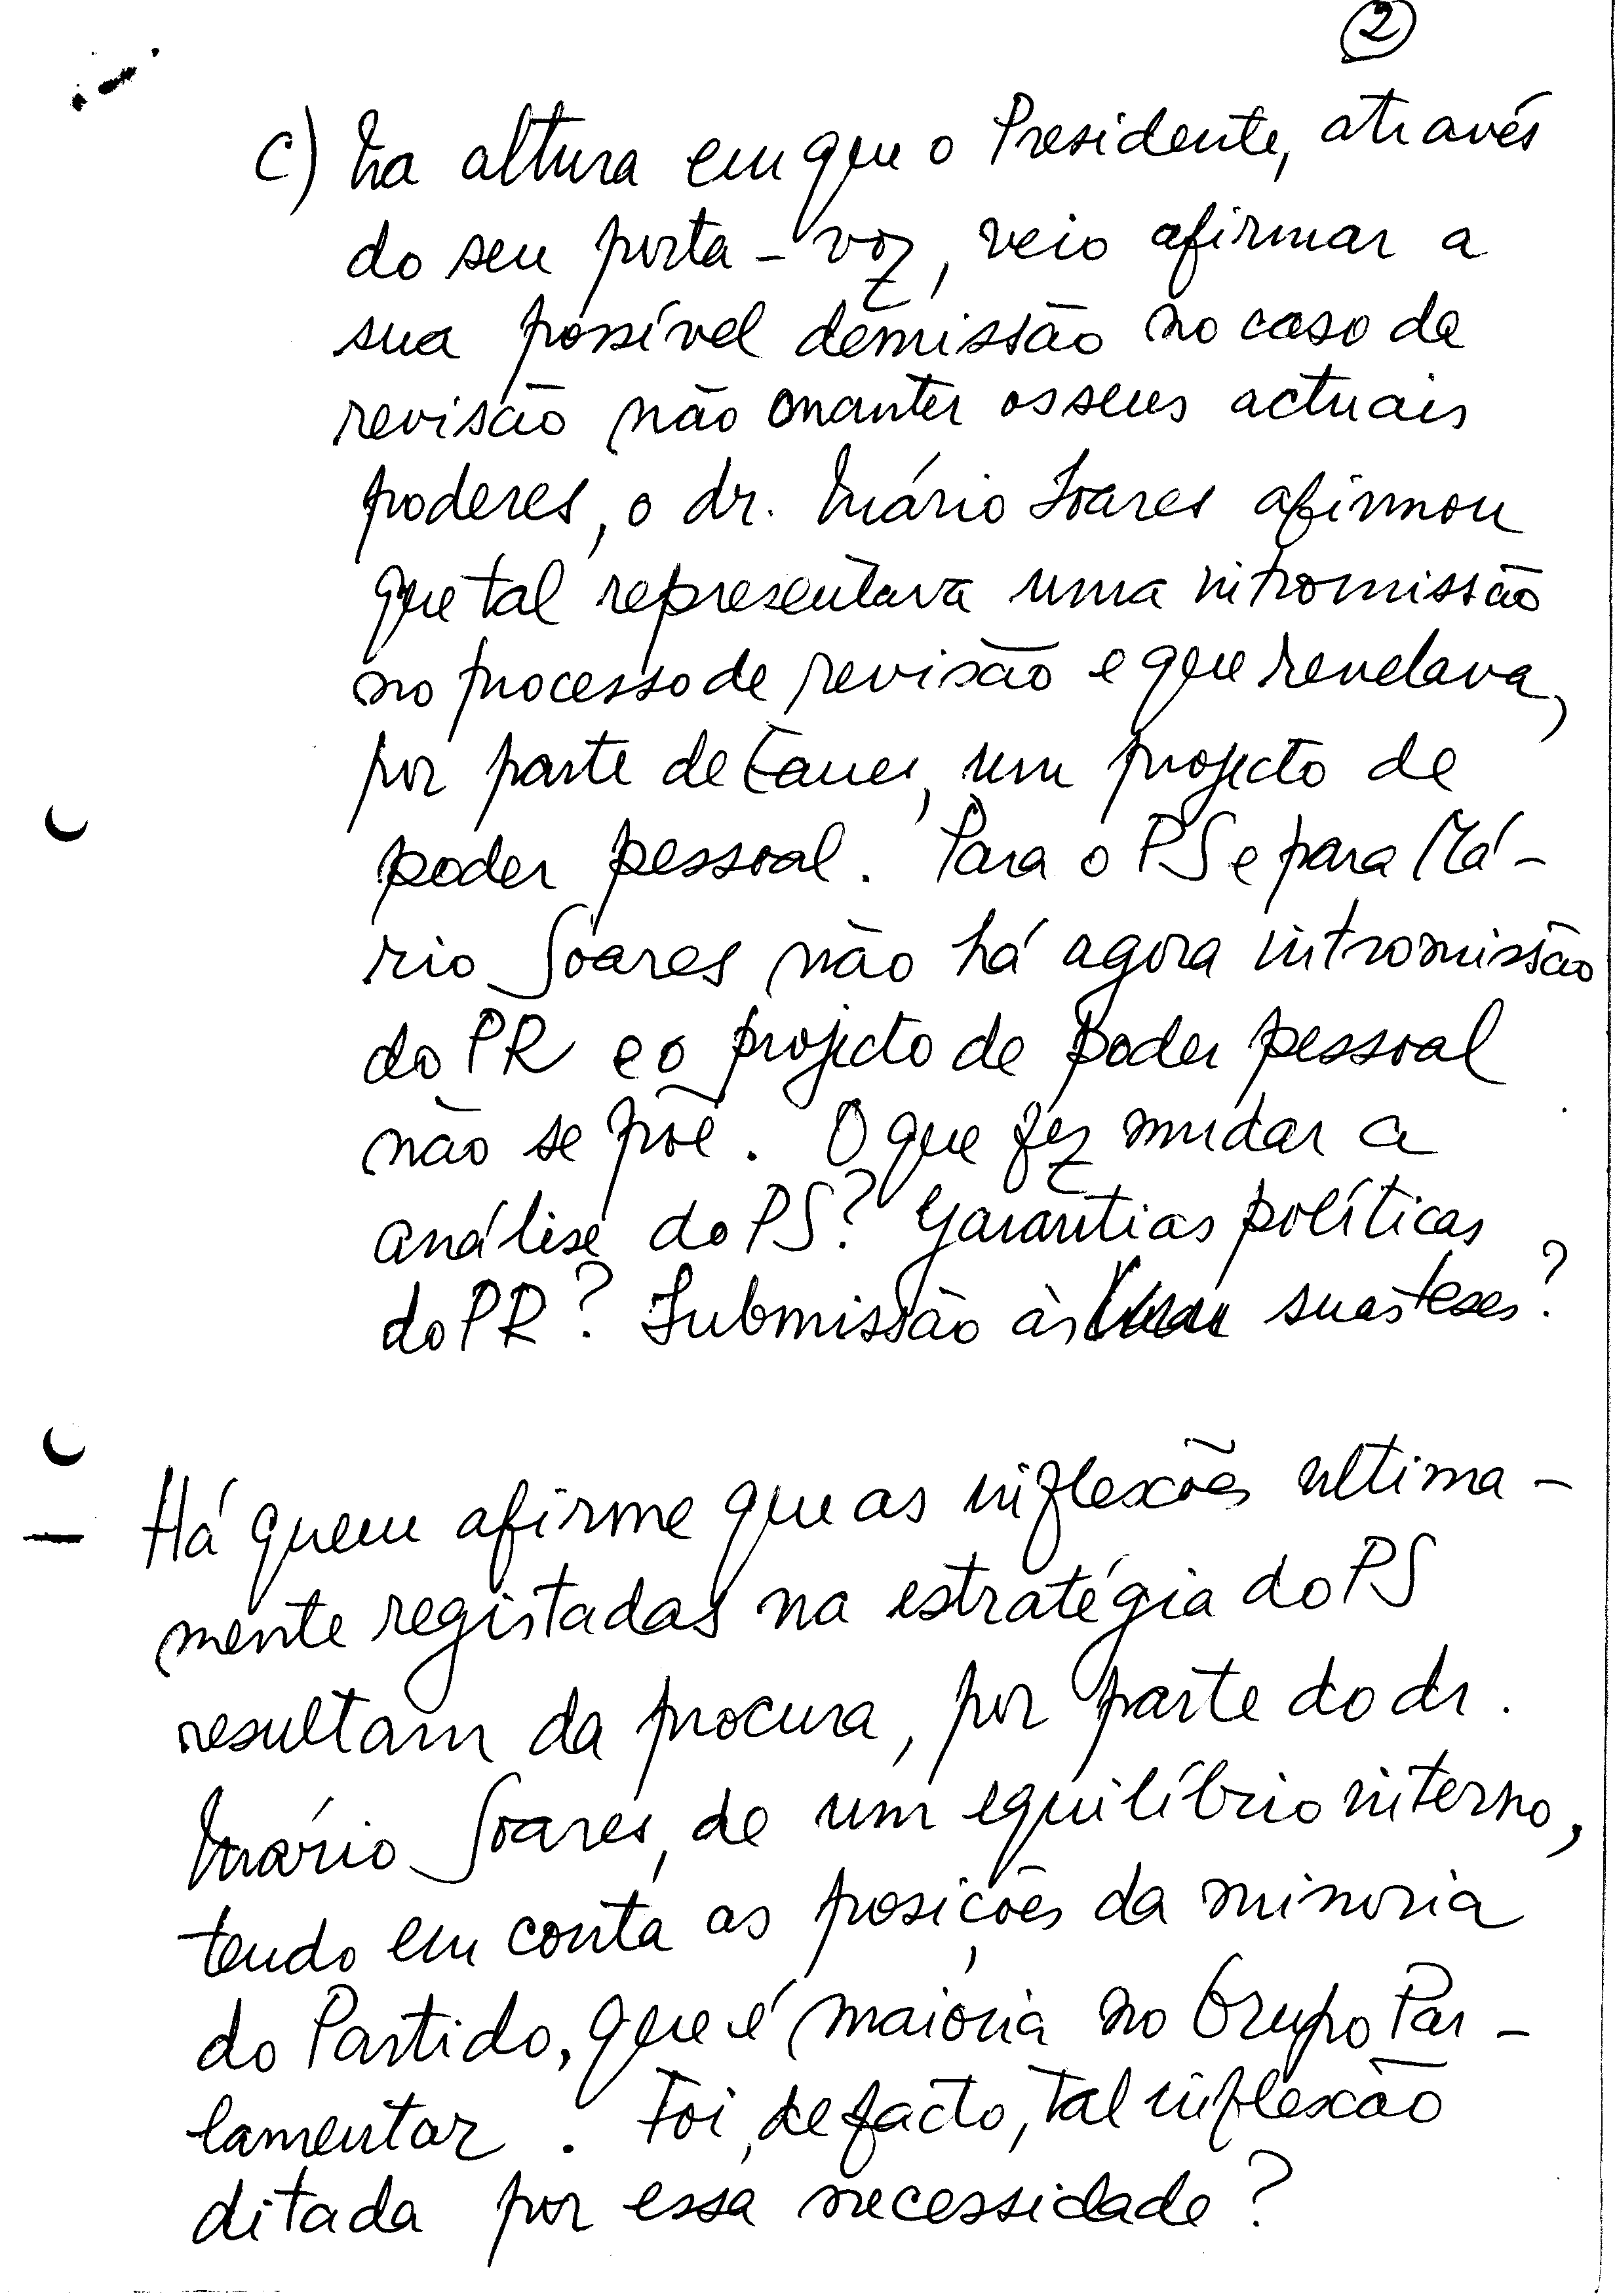 2
c) Na altura em que o Presidente, através
do seu porta-voz, veio afirmar a
sua possível demissão no caso da
revisão não manter os seus actuais
poderes, o dr. Mário Soares afirmou
que tal representava uma intromissão
no processo de revisão e que revelava,
por parte de Eanes, um projecto de
poder pessoal. Para o PS e para Má-
rio Soares não há agora intromissão
do PR e o projecto de poder pessoal
não se põe. O que fez mudar a
análise do PS? Garantias políticas
do PR? Submissão às suas teses?
— Há quem afirme que as inflexões ultima-
mente registadas na estratégia do PS
resultam da procura, por parte do dr.
Mário Soares, de um equilíbrio interno,
tendo em conta as posições da minoria
do Partido, que é maioria no Grupo Par-
lamentar. Foi, de facto, tal inflexão
ditada por essa necessidade?